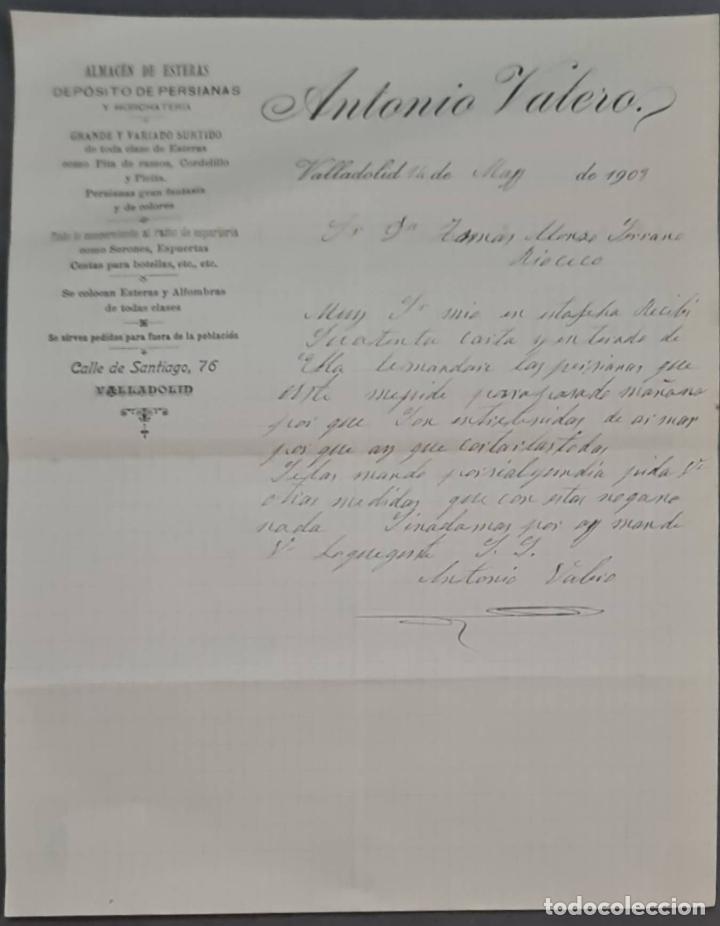 ALMACÉN DE ESTERAS
DEPÓSITO DE PERSIANAS
Y HORCHATERÍA
GRANDE Y VARIADO SURTIDO
de toda clase de Esteras
como Pita de ramos, Cordelillo
y Pleita.
Persianas gran fantasía
y de colores
Todo lo concerniente al ramo de espartería
como Serones, Espuertas
Cestas para botellas, etc., etc.
Se colocan Esteras y Alfombras
de todas clases
Se sirven pedidos para fuera de la población
Calle de Santiago, 76
VALLADOLID
Antonio Valero.
Valladolid 14 de de 1909
Sr Dn Tomás Alonso Serrano
Rioseco
Muy Sr mio en estafcha Recibí
Suatenta carta y enterado de
Ella lemandare las persianas que
oste mepide parapasado mañana
por que Son entretenidas de armar
por que ay que cortarlastodas
Selas mando por pida V.
otras medidas que con estas nogano
nada Sinadamas por ay mande
V. S. S.
Antonio Valero
todocoleccion